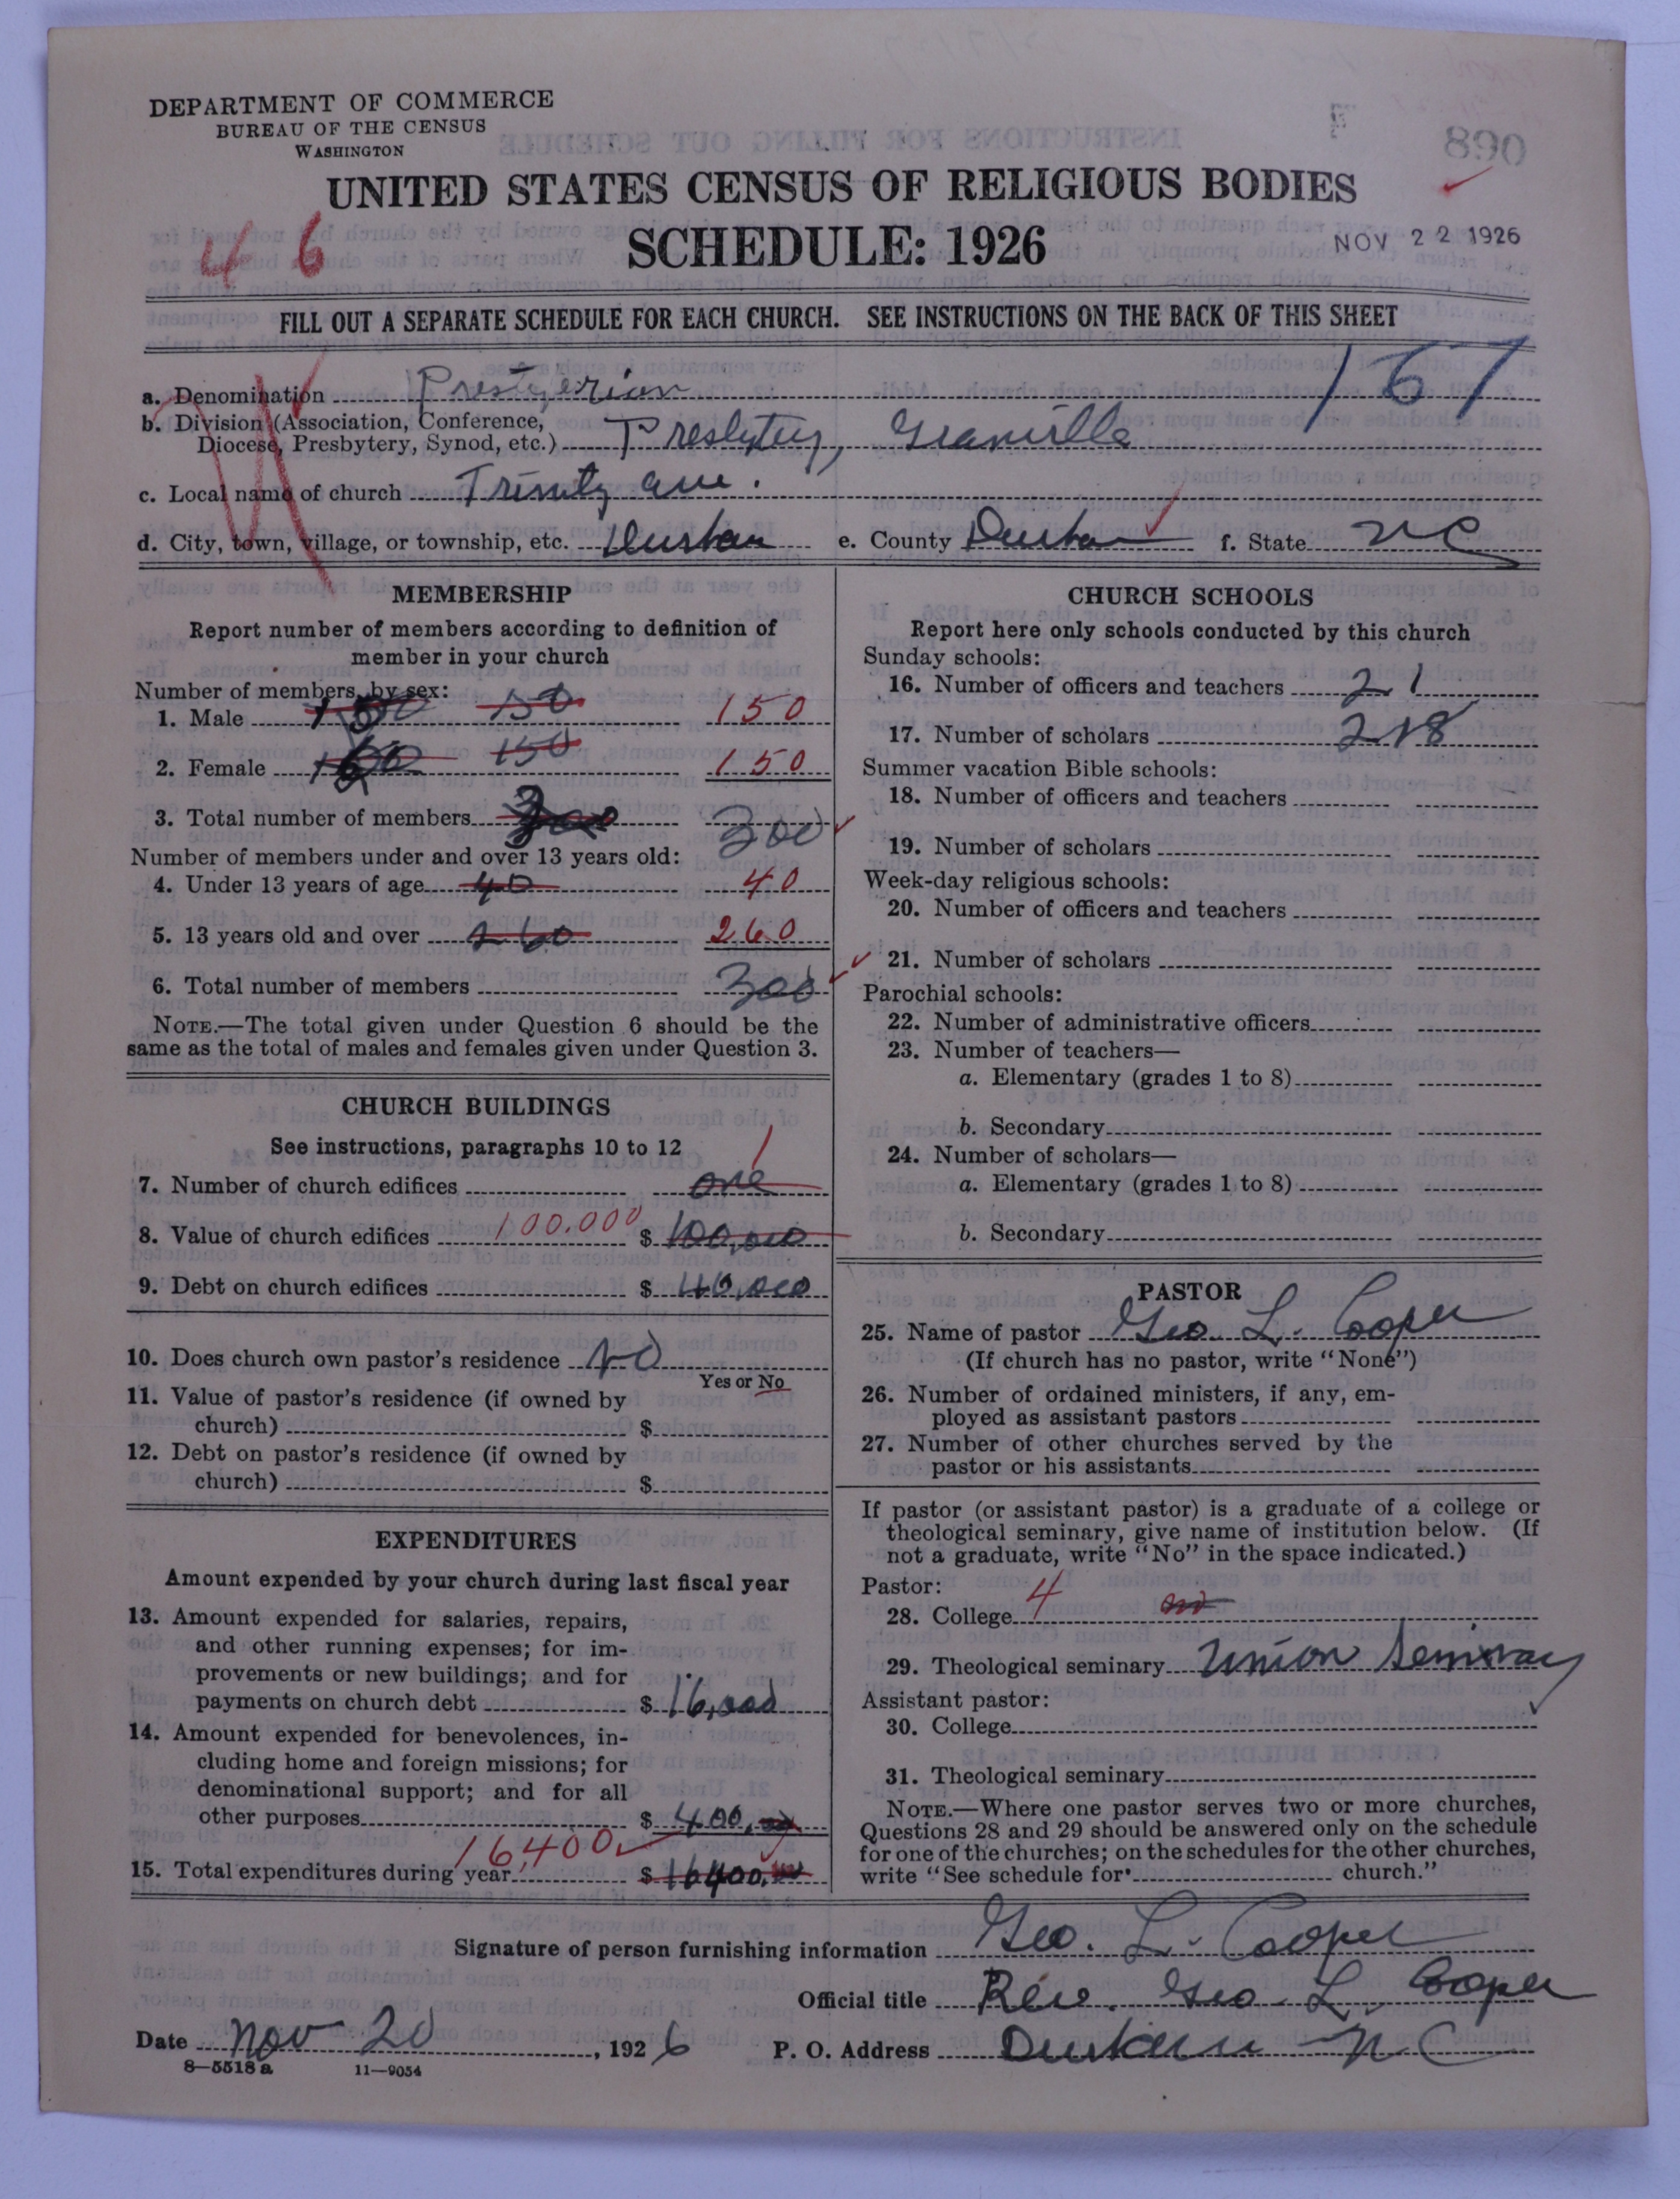 DEPARTMENT OF COMMERCE
BUREAU OF THE CENSUS
WASHINGTON
890
UNITED STATES CENSUS OF RELIGIOUS BODIES
4 6
SCHEDULE: 1926
NOV 22 1926
FILL OUT A SEPARATE SCHEDULE FOR EACH CHURCH. SEE INSTRUCTIONS ON THE BACK OF THIS SHEET
167
a. Denomination Presbyterian
b. Division (Association, Conference,
Diocese, Presbytery, Synod, etc.) Presbytery, Granville
c. Local name of church Trinity ave.
d. City, town, village, or township, etc. Durham e. County Durham f. State NC
MEMBERSHIP
Report number of members according to definition of
member in your church
Number of members, by sex:
1. Male 150 150
2. Female 150 150
3. Total number of members 300 300
Number of members under and over 13 years old:
4. Under 13 years of age 40 40
5. 13 years old and over 260 260
6. Total number of members 300
NOTE.—The total given under Question 6 should be the
same as the total of males and females given under Question 3.
CHURCH BUILDINGS
See instructions, paragraphs 10 to 12
7. Number of church edifices one 1
8. Value of church edifices 100.000 $ 100,000
9. Debt on church edifices $ 40,000
10. Does church own pastor's residence No
Yes or No
11. Value of pastor's residence (if owned by
church) $
12. Debt on pastor's residence (if owned by
church) $
EXPENDITURES
Amount expended by your church during last fiscal year
13. Amount expended for salaries, repairs,
and other running expenses; for im-
provements or new buildings; and for
payments on church debt $ 16,000
14. Amount expended for benevolences, in-
cluding home and foreign missions; for
denominational support; and for all
other purposes $ 400.
16400
15. Total expenditures during year $ 16400.
CHURCH SCHOOLS
Report here only schools conducted by this church
Sunday schools:
16. Number of officers and teachers 21
17. Number of scholars 218
Summer vacation Bible schools:
18. Number of officers and teachers
19. Number of scholars
Week-day religious schools:
20. Number of officers and teachers
21. Number of scholars
Parochial schools:
22. Number of administrative officers
23. Number of teachers—
a. Elementary (grades 1 to 8)
b. Secondary
24. Number of scholars—
a. Elementary (grades 1 to 8)
b. Secondary
PASTOR
25. Name of pastor Geo. L. Cooper
(If church has no pastor, write "None")
26. Number of ordained ministers, if any, em-
ployed as assistant pastors
27. Number of other churches served by the
pastor or his assistants
If pastor (or assistant pastor) is a graduate of a college or
theological seminary, give name of institution below. (If
not a graduate, write "No" in the space indicated.)
Pastor:
28. College 4 no
29. Theological seminary Union Seminary
Assistant pastor:
30. College
31. Theological seminary
NOTE.—Where one pastor serves two or more churches,
Questions 28 and 29 should be answered only on the schedule
for one of the churches; on the schedules for the other churches,
write "See schedule for church."
Signature of person furnishing information Geo. L. Cooper
Official title Rev. Geo. L. Cooper
Date Nov 20, 1926 P. O. Address Durham N C
8—5518 a 11—9054